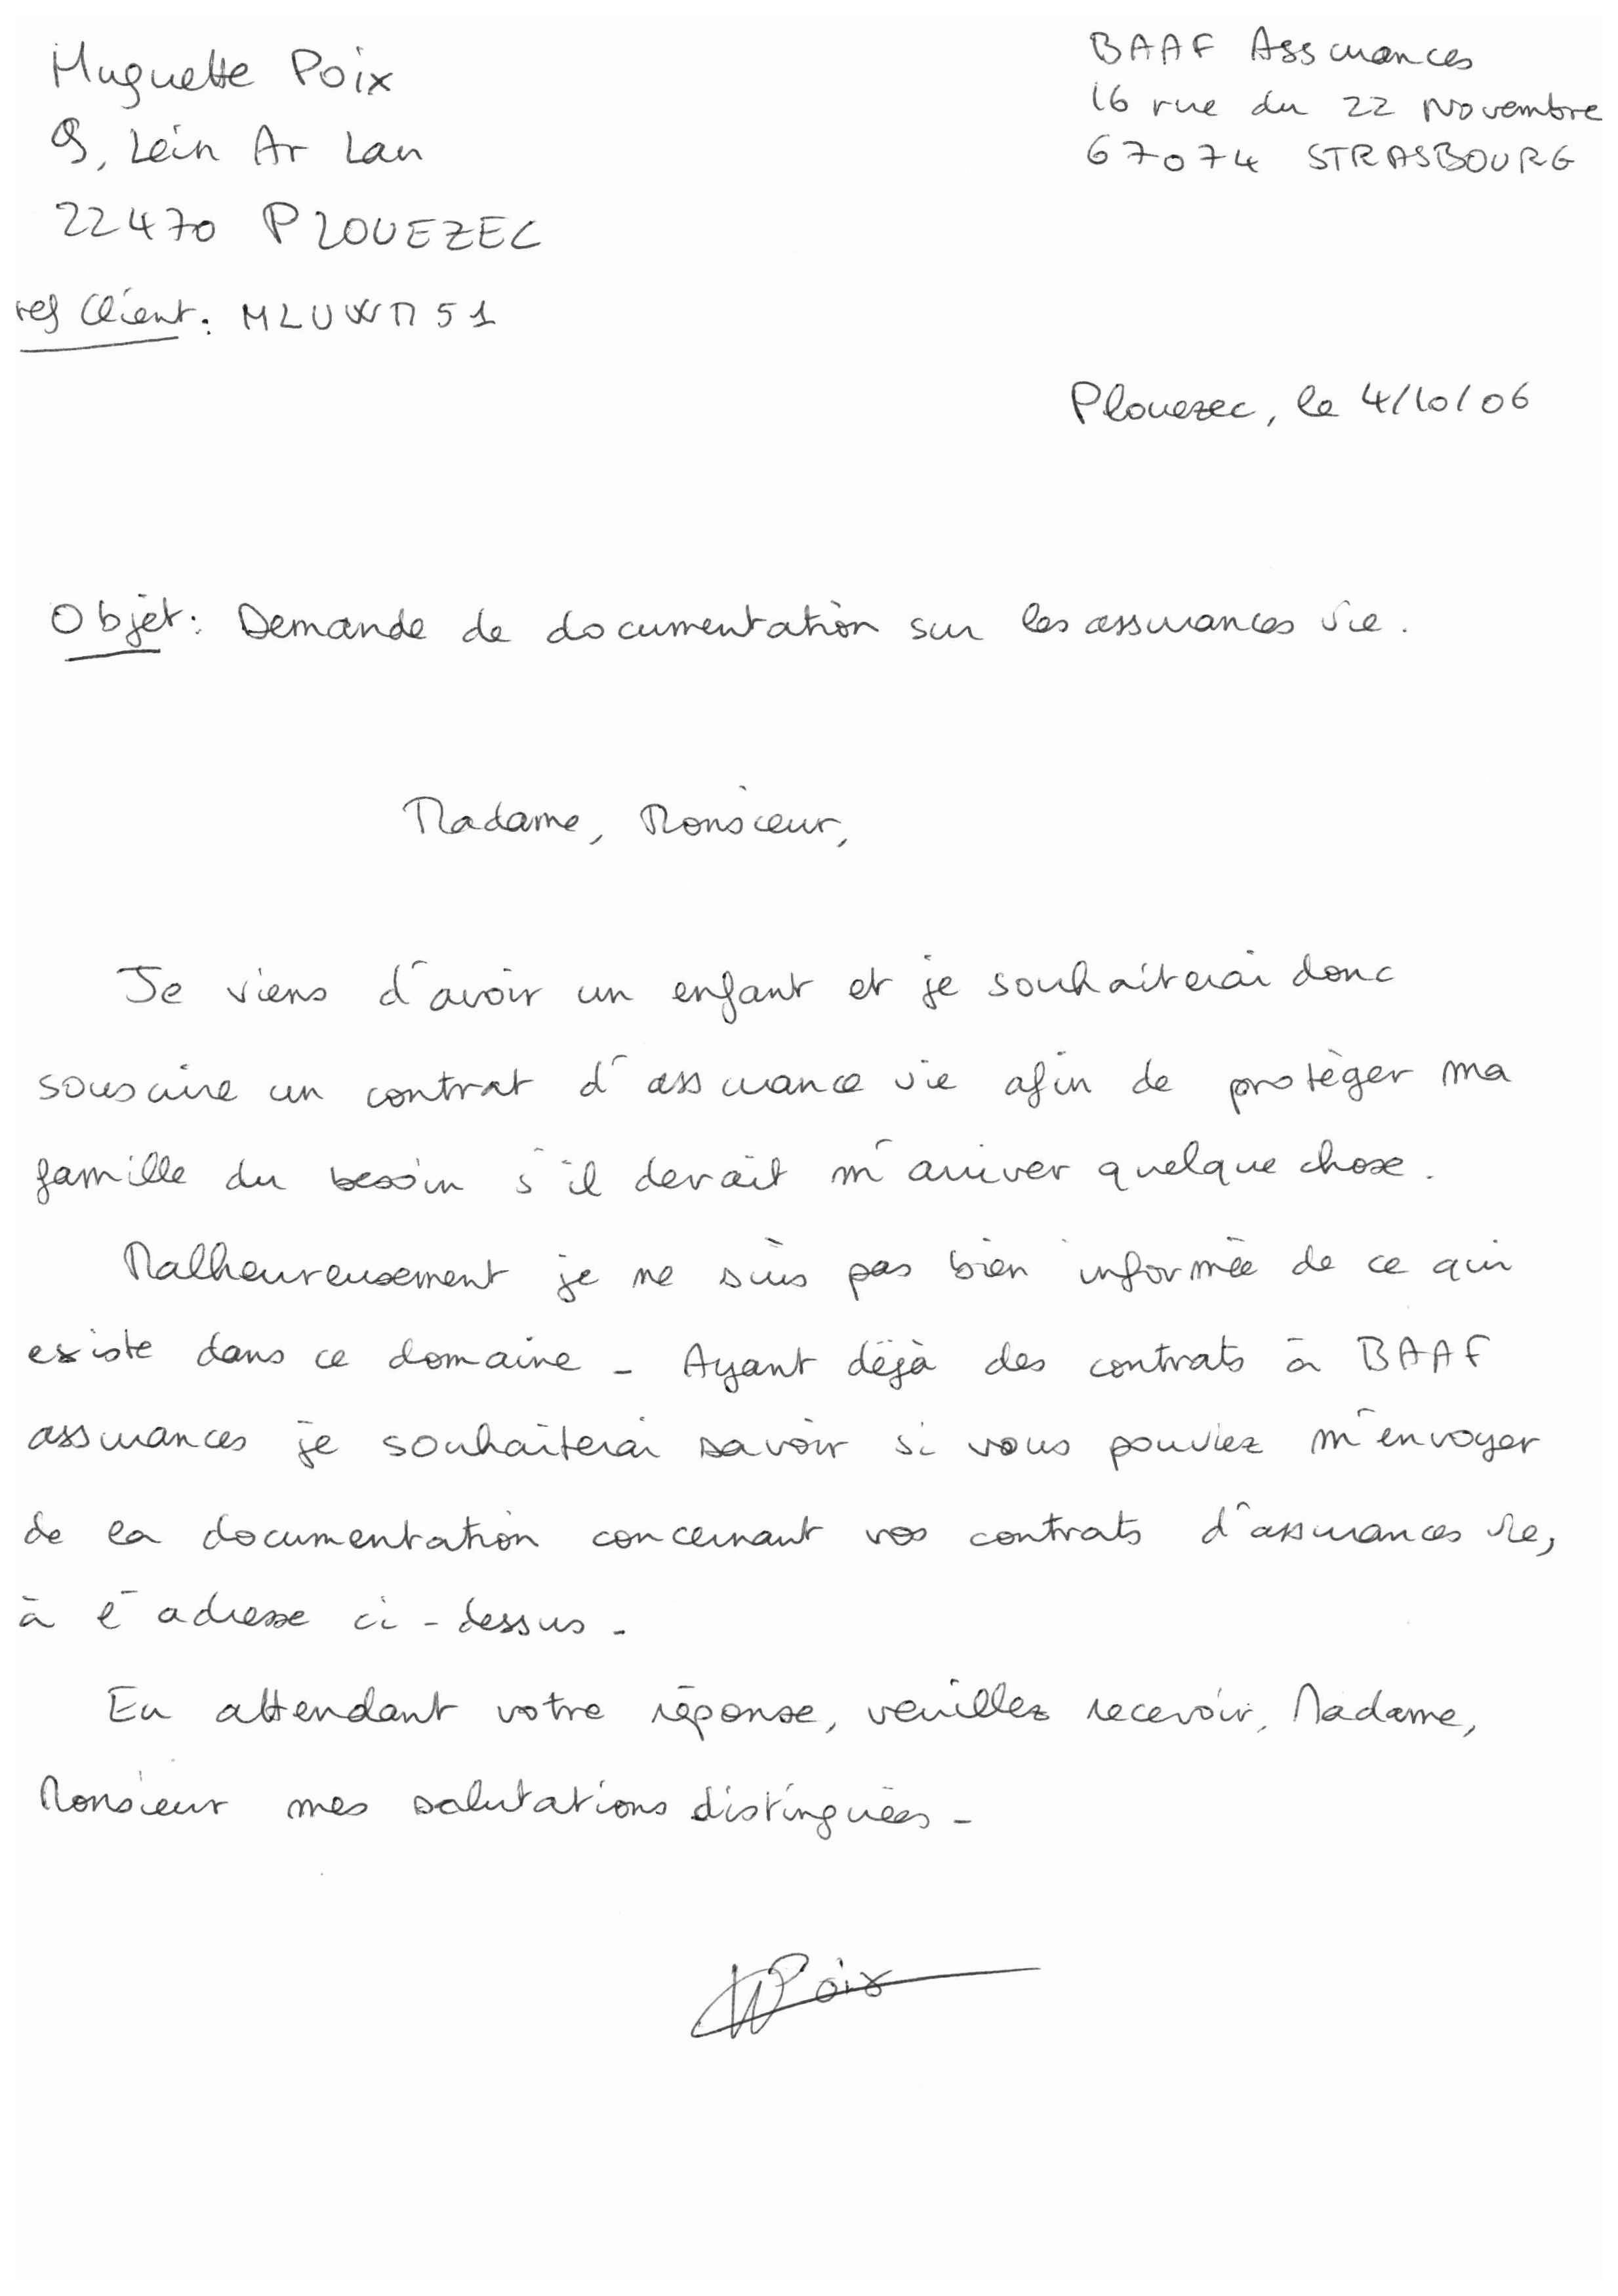 Huguette Poix
9, Lein Ar Lan
22470 PLOUEZEC
ref Client: MLUWM51
BAAF Assurances
16 rue du 22 Novembre
67074 STRASBOURG
Plouezec, le 4/10/06
Objet: Demande de documentation sur les assurances vie.
Madame, Monsieur,
Je viens d'avoir un enfant et je souhaiterai donc
souscrire un contrat d'assurance vie afin de protéger ma
famille du besoin s'il devait m'arriver quelque chose.
Malheureusement je ne suis pas bien informée de ce qui
existe dans ce domaine - Ayant déjà des contrats à BAAF
assurances je souhaiterai savoir si vous pouviez m'envoyer
de la documentation concernant vos contrats d'assurances vie,
à l'adresse ci-dessus -
En attendant votre réponse, veuillez recevoir, Madame,
Monsieur mes salutations distinguées -
HPoix